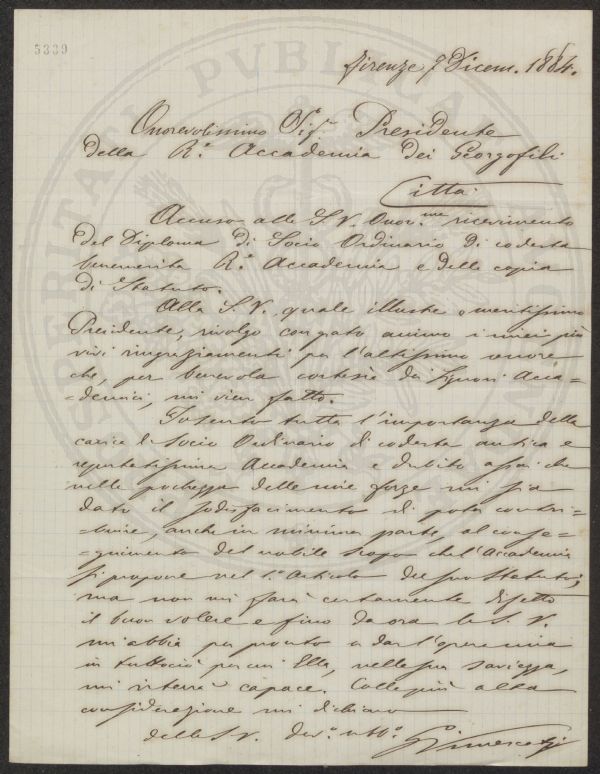 5339
Firenze 9 Dicem. 1884.
Onorevolissimo Sigr Presidente
della R.a Accademia dei Georgofili
Città
Accuso alla S. V. Onor.me ricevimento
del Diploma di Socio Ordinario di codesta
benemerita R.a Accademia e della copia
di Statuto.
Alla S. V. quale illustre e meritissimo
Presidente, rivolgo con grato animo i miei più
vivi ringraziamenti per l'altissimo onore
che, per benevola cortesia dei Signori Acca=
=demici, mi vien fatto.
Io sento tutta l'importanza della
carica di Socio Ordinario di codesta antica e
reputatissima Accademia e dubito assai che
nella pochezza delle mie forze mi sia
dato il sodisfacimento di poter contri=
=buire, anche in minima parte, al conse=
=guimento del nobile scopo che l'Accademia
si propone nel 1.o Articolo del suo Statuto;
ma non mi farà certamente difetto
il buon volere e fino da ora la S. V.
mi abbia per pronto a dar l'opera mia
in tuttociò per cui Ella, nella sua saviezza,
mi riterrà capace. Colla più alta
considerazione mi dichiaro
della S. V. dev.o
PROSPERITATI PUBLICAE